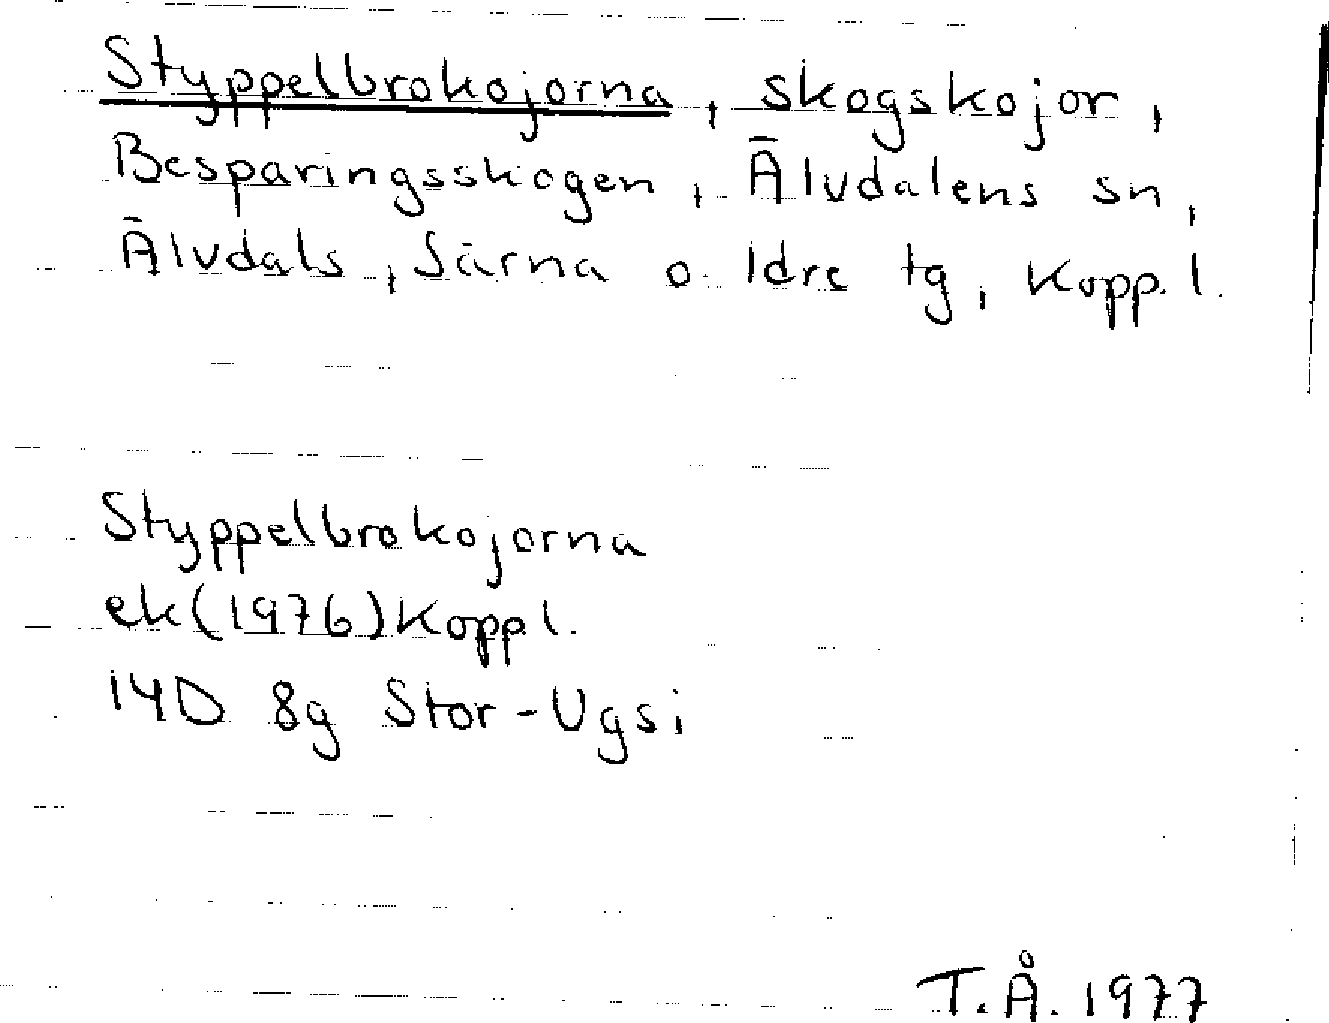 Styppelbrokojorna, skogskojor,
Besparingsskogen, Älvdalens sn,
Älvdals, Särna o. Idre tg, Kopp. l.
Styppelbrokojorna
ek (1976) Kopp l.
14D 8g Stor-Ugsi
T.Å. 1977